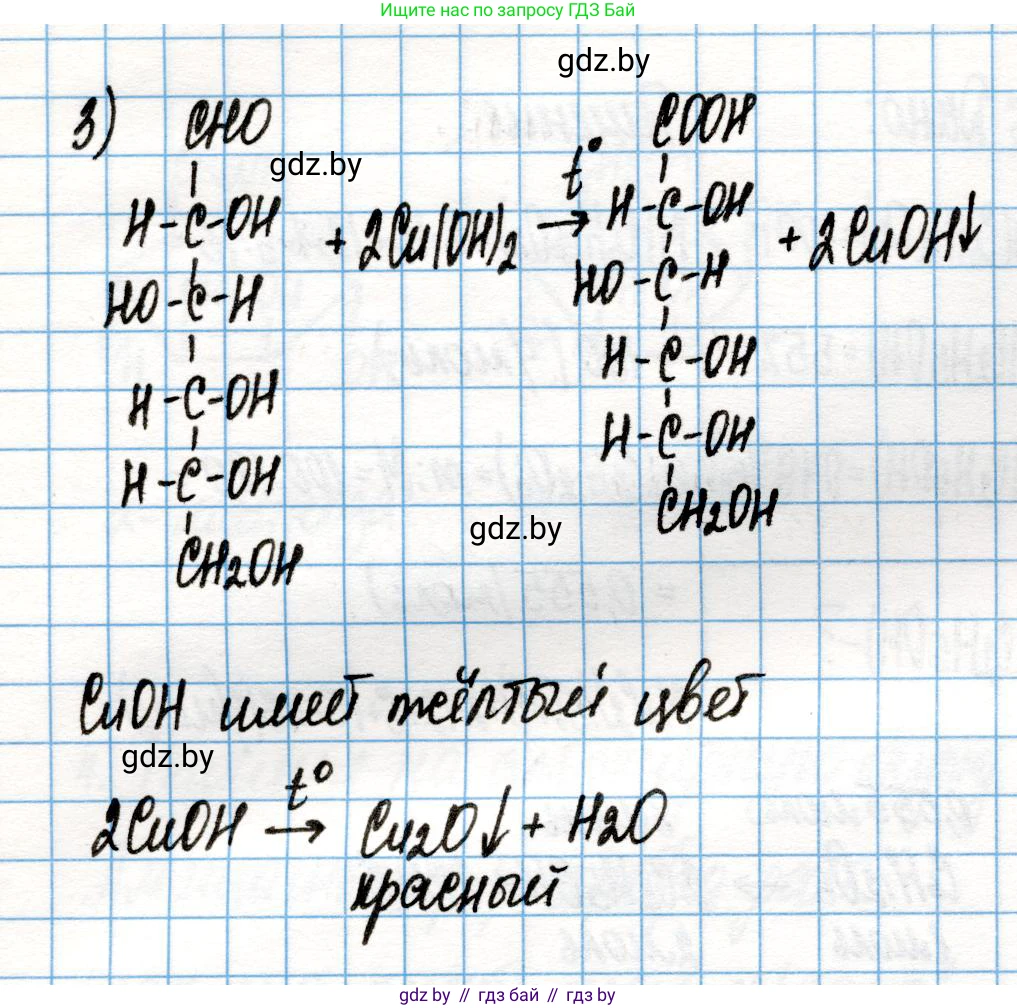 Ищите нас по запросу ГДЗ Бай
gdz.by
3) CHO COOH
gdz.by t°
H-C-OH + 2Cu(OH)2 → H-C-OH + 2CuOH↓
HO-C-H HO-C-H
H-C-OH H-C-OH
H-C-OH H-C-OH
CH2OH CH2OH
gdz.by
CuOH имеет жёлтый цвет
gdz.by
t°
2CuOH → Cu2O↓ + H2O
красный
gdz.by // гдз бай // гдз by